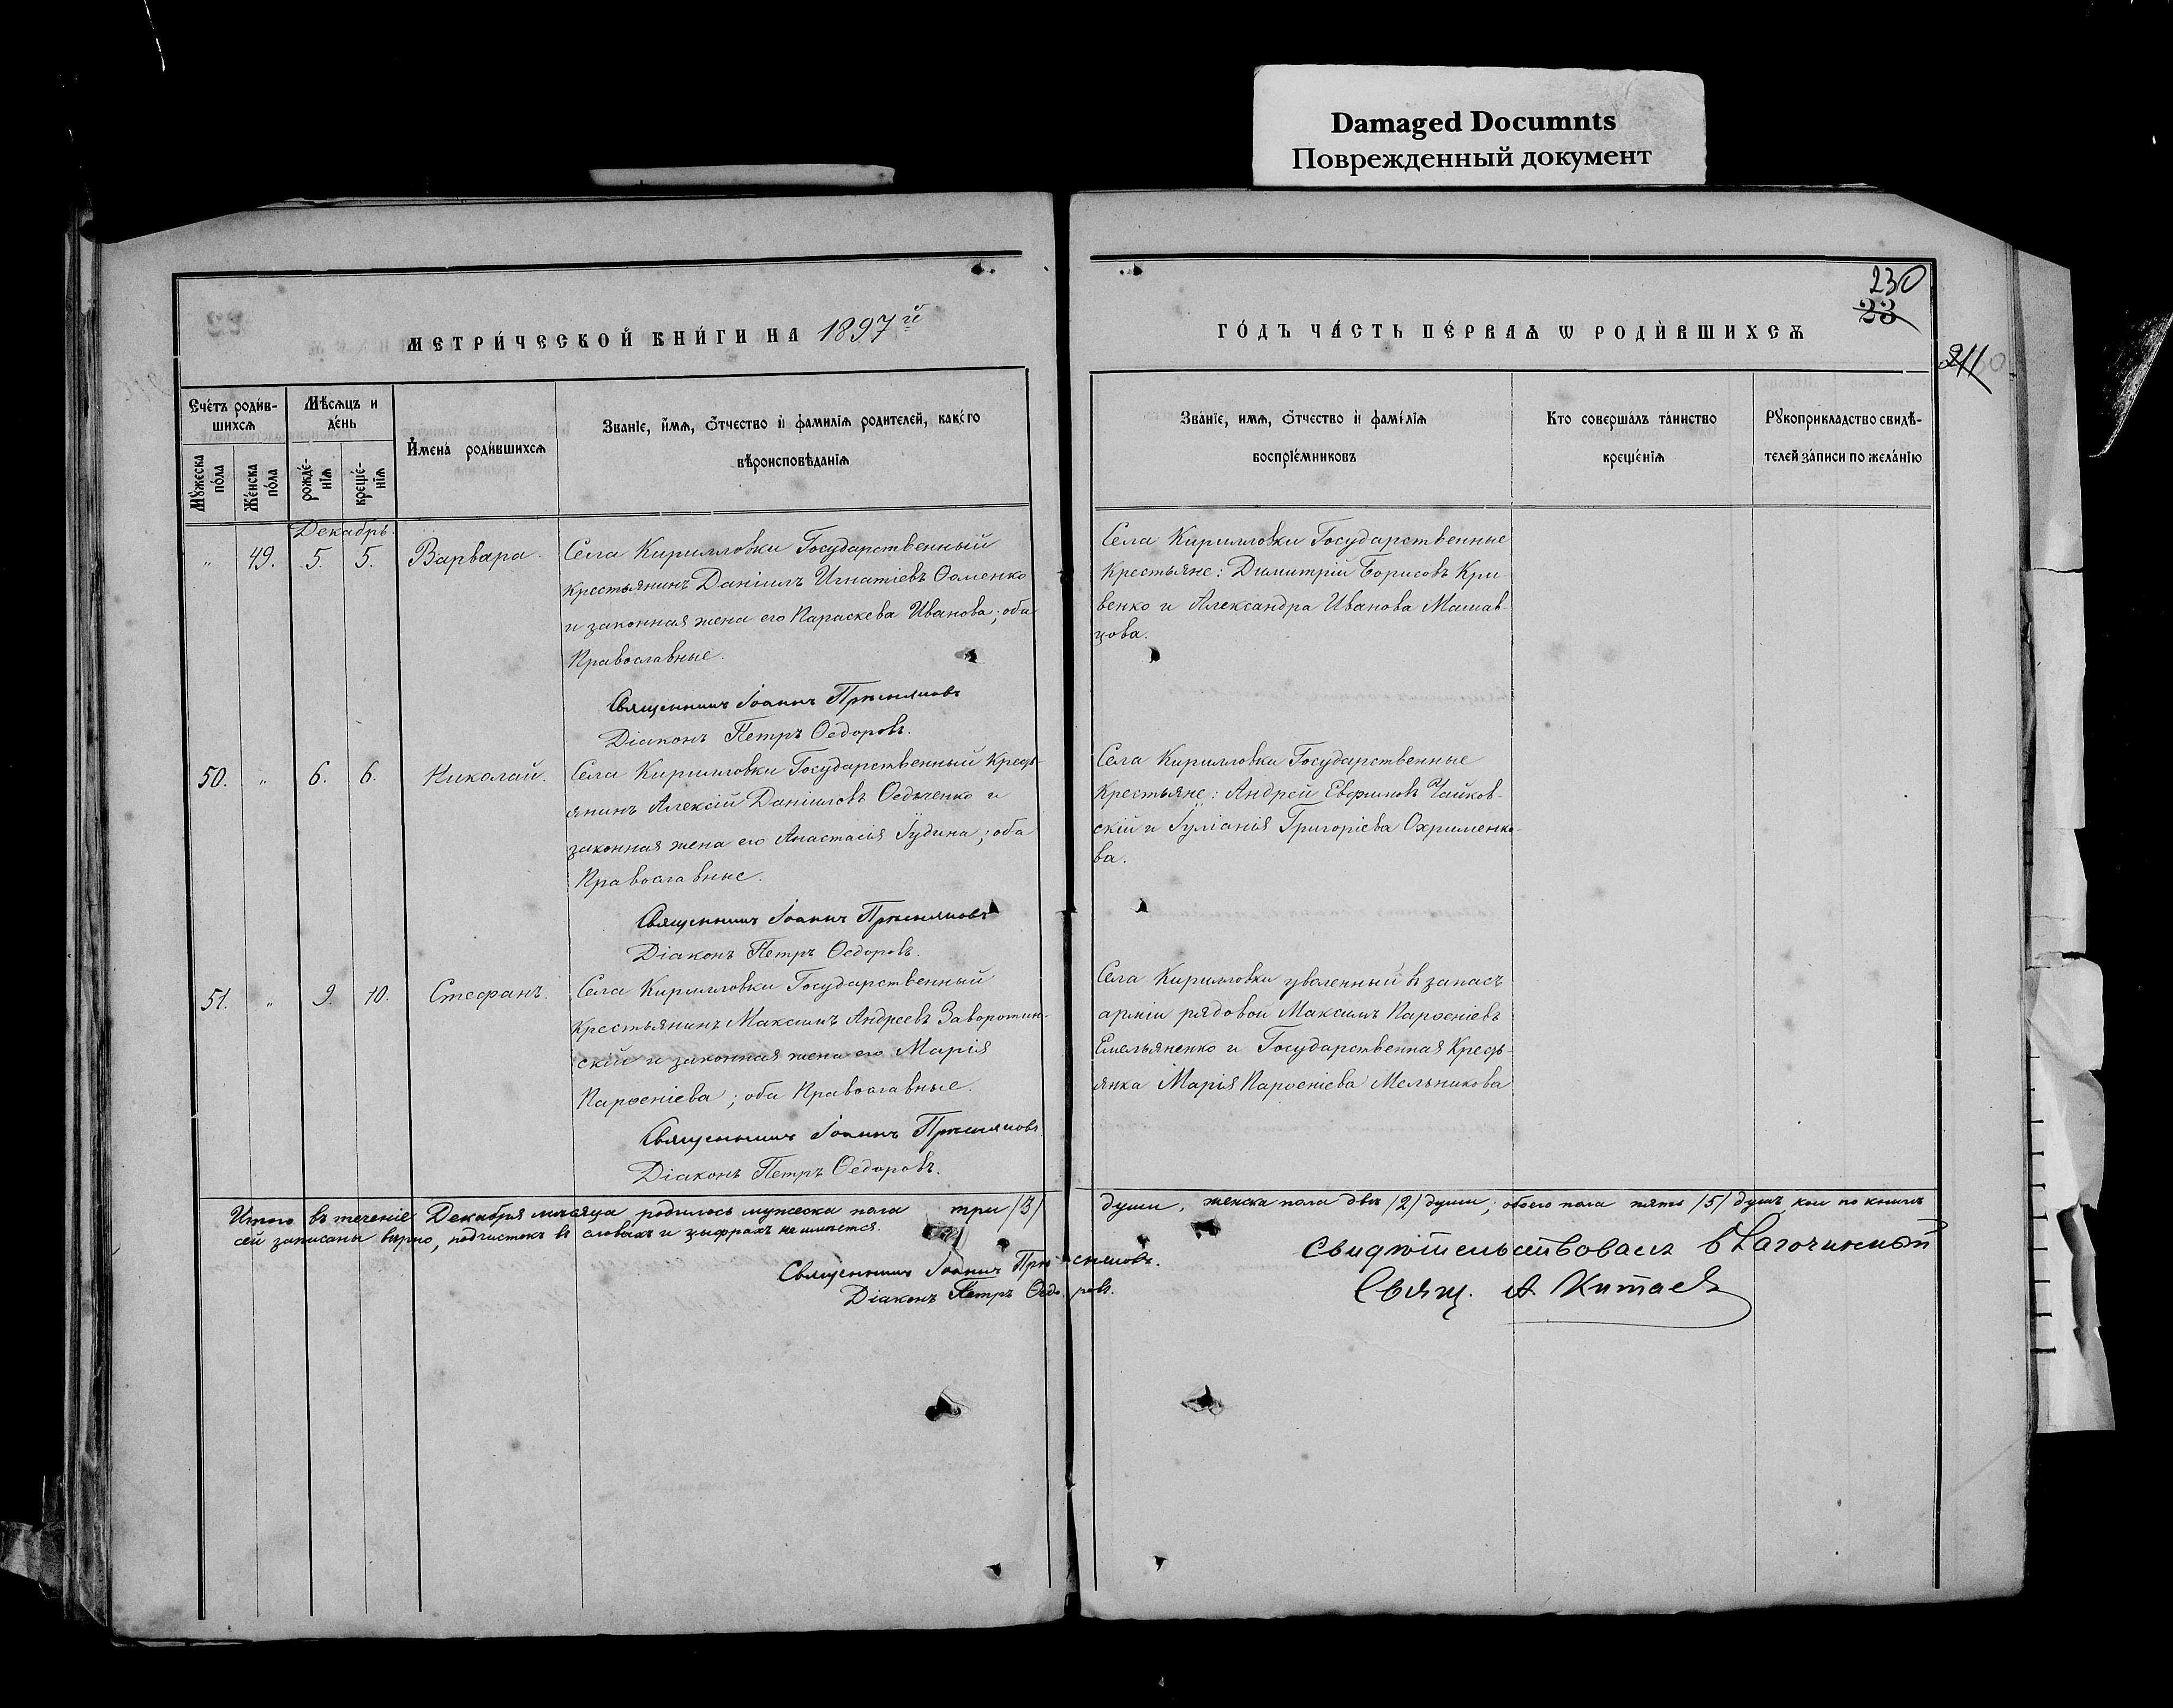 Damaged Documnts
Поврежденный документ
230
23
211
МЕТРИ́ЧЕСКОЙ КНИ́ГИ НА 1897й
ГО́ДЪ ЧА́СТЬ ПЕ́РВАѦ Ѡ РОДИ́ВШИХСѦ
Сче́тъ роди́в-
шихсѧ
Мꙋжеска по́ла
Же́нска по́ла
Мѣ́сѧцъ и
де́нь
рожде́-
нїѧ
креще́-
нїѧ
И҆мена́ роди́вшихсѧ
Зва́нїе, и҆́мѧ, ѻ҆́тчество и҆ фами́лїѧ роди́телей, како́го
вѣроисповѣ́данїѧ
Зва́нїе, и҆́мѧ, ѻ҆́тчество и҆ фами́лїѧ
воспрїе́мниковъ
Кто соверша́лъ та́инство
креще́нїѧ
Рꙋкоприкла́дство свидѣ́-
телей за́писи по жела́нїю
Декабрь.
" 49. 5. 5. Варвара.
Села Кирилловки Государственный
крестьянинъ Даніилъ Игнатіевъ Ѳоменко
и законная жена его Параскева Иванова; оба
Православные.
Священникъ Іоаннъ
Діаконъ Петръ Ѳедоровъ.
Села Кирилловки Государственные
Крестьяне: Димитрій Борисовъ Кри-
венко и Александра Иванова Машав-
цова.
50. " 6. 6. Николай.
Села Кирилловки Государственный Кресть-
янинъ Алексій Даніиловъ Ѳедьченко и
законная жена его Анастасія Іудина; оба
Православные.
Священникъ Іоаннъ
Діаконъ Петръ Ѳедоровъ.
Села Кирилловки Государственные
Крестьяне: Андрей Евѳимовъ Чайков-
скій и Іуліанія Григоріева Охрименко-
ва.
51. " 9. 10. Стефанъ.
Села Кирилловки Государственный
Крестьянинъ Максимъ Андреевъ Заворотин-
скій и законная жена его Марія
Парѳеніева; оба Православные.
Священникъ Іоаннъ
Діаконъ Петръ Ѳедоровъ.
Села Кирилловки уволенный въ запасъ
арміи рядовой Максимъ Парѳеніевъ
Емельяненко и Государственная Кресть-
янка Марія Парѳеніева Мельникова
Итого въ теченіе Декабря мѣсяца родилось мужеска пола три /3/ души, женска пола двѣ /2/ души; обоего пола пять /5/ душъ, кои по книгѣ
сей записаны вѣрно, подчистокъ въ словахъ и цыфрахъ не имѣется.
Священникъ Іоаннъ
Діаконъ Петръ Ѳедоровъ.
Свидѣтельствовалъ благочинный
Свящ. А Китаевъ